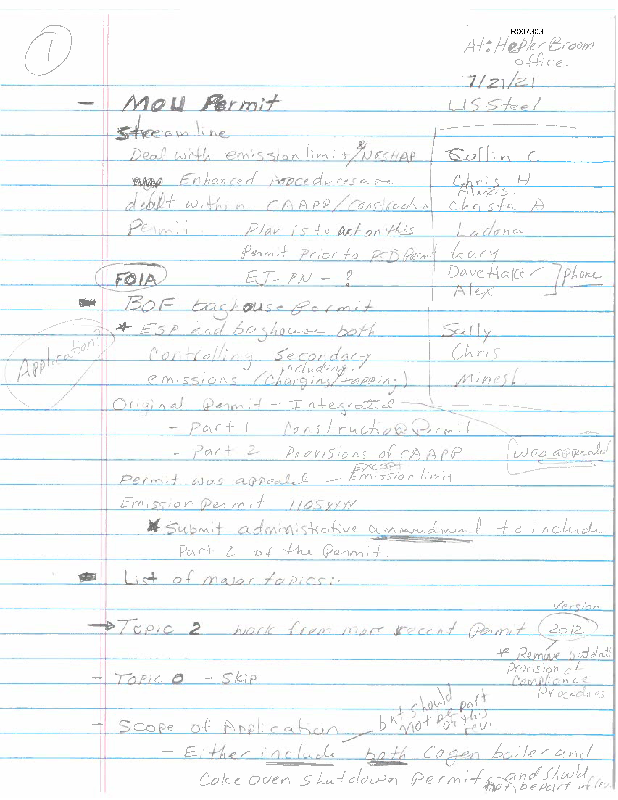 R007303
1
At: Hepler Broom
office.
7/21/21
- MOU Permit
US Steel
Streamline
Deal with emission limits/NESHAP
Enhanced procedures are
Chris H
dealt within CAAPP/Construction
Chasta A
Permit. Plan is to act on this
Ladona
permit prior to PCB Permit
FOIA EJ-PN-?
Dave Hacker
Alex
phone
- BOF baghouse permit
* ESP and baghouse both
Sally
Application?
controlling secondary
Chris
including
emissions (charging/tapping)
Minesh
Original Permit - Integrated
- Part 1 Construction Permit
- Part 2 Provisions of CAAPP
was appealed
Permit was appealed - Except Emission limit
Emission Permit
* Submit administrative amendment to include
Part 2 of the Permit.
- List of major topics:
version
→ Topic 2 work from more recent permit 2012
* Remove
Provision of
Compliance
Procedures
- Topic 0 - Skip
but should
not be part
of this
- Scope of Application
- Either include both Cogen boiler and
Coke oven shutdown permits and should
not be part of